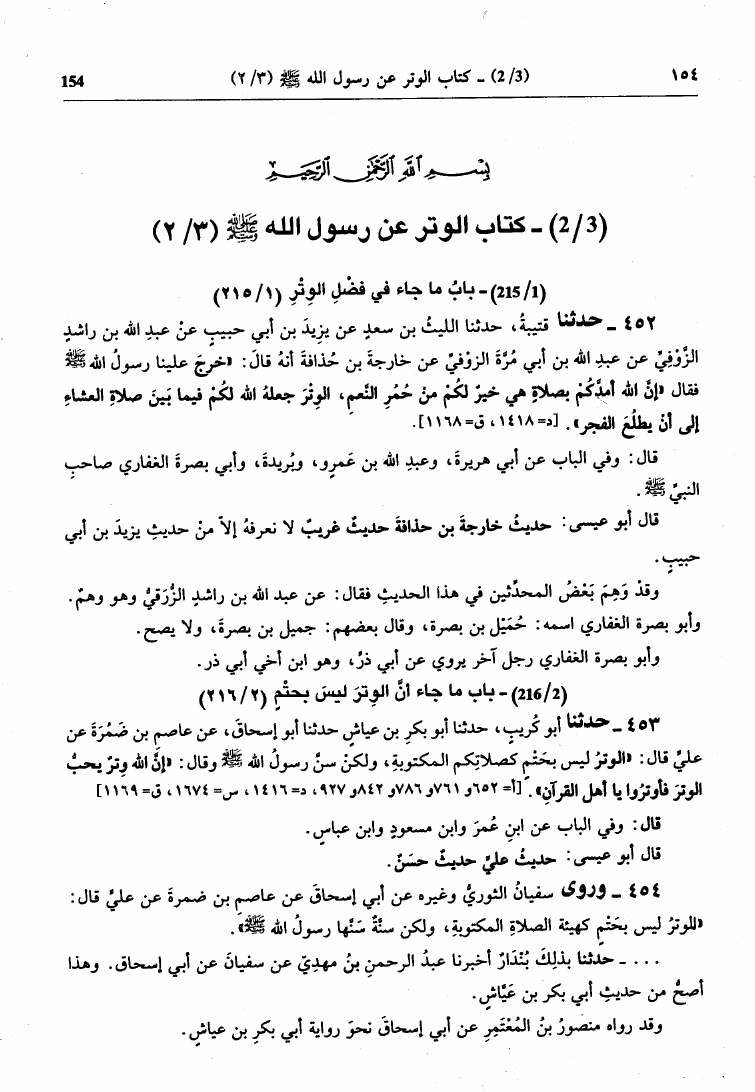 ١٥٤ (2/3) ـ كتاب الوتر عن رسول الله ﷺ (٢/٣) 154
بِسْمِ اللهِ الرَّحْمٰنِ الرَّحِيمِ
(2/3) ـ كتاب الوتر عن رسول الله ﷺ (٢/٣)
(215/1) ـ بابُ ما جاء في فضْلِ الوِتْرِ (٢١٥/١)
٤٥٢ ـ حدثنا قتيبةُ، حدثنا الليثُ بن سعدٍ عن يزيدَ بن أبي حبيبٍ عنْ عبدِ الله بن راشدٍ
الزَّوْفِيِّ عن عبدِ الله بن أبي مُرَّةَ الزوْفيِّ عن خارجةَ بن حُذافةَ أنهُ قالَ: «خرجَ علينا رسولُ الله ﷺ
فقال «إنَّ الله أمدَّكُمْ بصلاةٍ هي خيرٌ لكُمْ من حُمُرِ النَّعمِ، الوِتْرَ جعلهُ الله لكُمْ فيما بَينَ صلاةِ العشاءِ
إلى أن يطلُعَ الفجر». [د= ١٤١٨، ق= ١١٦٨].
قال: وفي الباب عن أبي هريرةَ، وعبدِ الله بن عَمرٍو، وبُريدةَ، وأبي بصرةَ الغفاري صاحبِ
النبيِّ ﷺ.
قال أبو عيسى: حديثُ خارجةَ بن حذافةَ حديثٌ غريبٌ لا نعرفهُ إلاَّ منْ حديثِ يزيدَ بن أبي
حبيبٍ.
وقدْ وَهِمَ بَعْضُ المحدِّثين في هذا الحديثِ فقال: عن عبد الله بن راشدٍ الزُّرَقيُّ وهو وهمٌ.
وأبو بصرة الغفاري اسمه: حُمَيْل بن بصرة، وقال بعضهم: جميل بن بصرةَ، ولا يصح.
وأبو بصرةَ الغفاري رجل آخر يروي عن أبي ذرٍّ، وهو ابن أخي أبي ذر.
(216/2) ـ باب ما جاء أنَّ الوِترَ ليسَ بحتْمٍ (٢١٦/٢)
٤٥٣ ـ حدثنا أبو كُريبٍ، حدثنا أبو بكرِ بن عياشٍ حدثنا أبو إسحاقَ، عن عاصم بن ضَمُرَةَ عن
عليٍّ قال: «الوترُ ليس بحَتْمٍ كصلاتِكم المكتوبةِ، ولكنْ سنَّ رسولُ الله ﷺ وقال: «إنَّ الله وِترٌ يحبُّ
الوترَ فأوتِرُوا يا أهل القرآنِ». [أ= ٦٥٢و ٧٦١و ٧٨٦و ٨٤٢و ٩٢٧، د= ١٤١٦، س= ١٦٧٤، ق= ١١٦٩]
قال: وفي الباب عن ابنِ عُمرَ وابن مسعودٍ وابن عباسٍ.
قال أبو عيسى: حديثُ عليٍّ حديثٌ حسَنٌ.
٤٥٤ ـ وروى سفيانُ الثوريُّ وغيره عن أبي إسحاقَ عن عاصم بن ضمرةَ عن عليٍّ قال:
«الوترُ ليس بحَتْمٍ كهيئة الصلاةِ المكتوبةِ، ولكن سنَّةٌ سَنَّها رسولُ الله ﷺ».
... ـ حدثنا بذلكَ بُنْدَارٌ أخبرنا عبدُ الرحمنِ بنُ مهديّ عن سفيانَ عن أبي إسحاق. وهذا
أصحُّ من حديثِ أبي بكر بن عَيَّاشٍ.
وقد رواه منصورُ بنُ المُعْتَمِرِ عن أبي إسحاقَ نحوَ رواية أبي بكرِ بن عياشٍ.